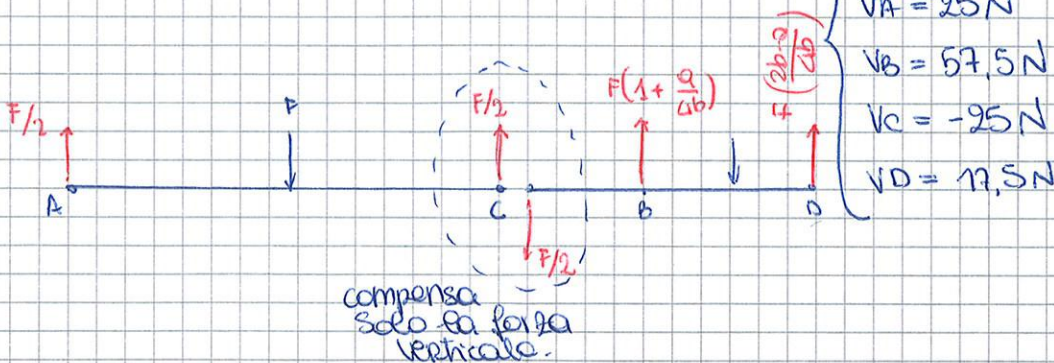 VA = 25 N
VB = 57,5 N
VC = -25 N
VD = 17,5 N
F/2
F
F/2
F(1 + a/4b)
F(2b-a/4b)
A
C
B
D
F/2
compensa
solo la forza
verticale.